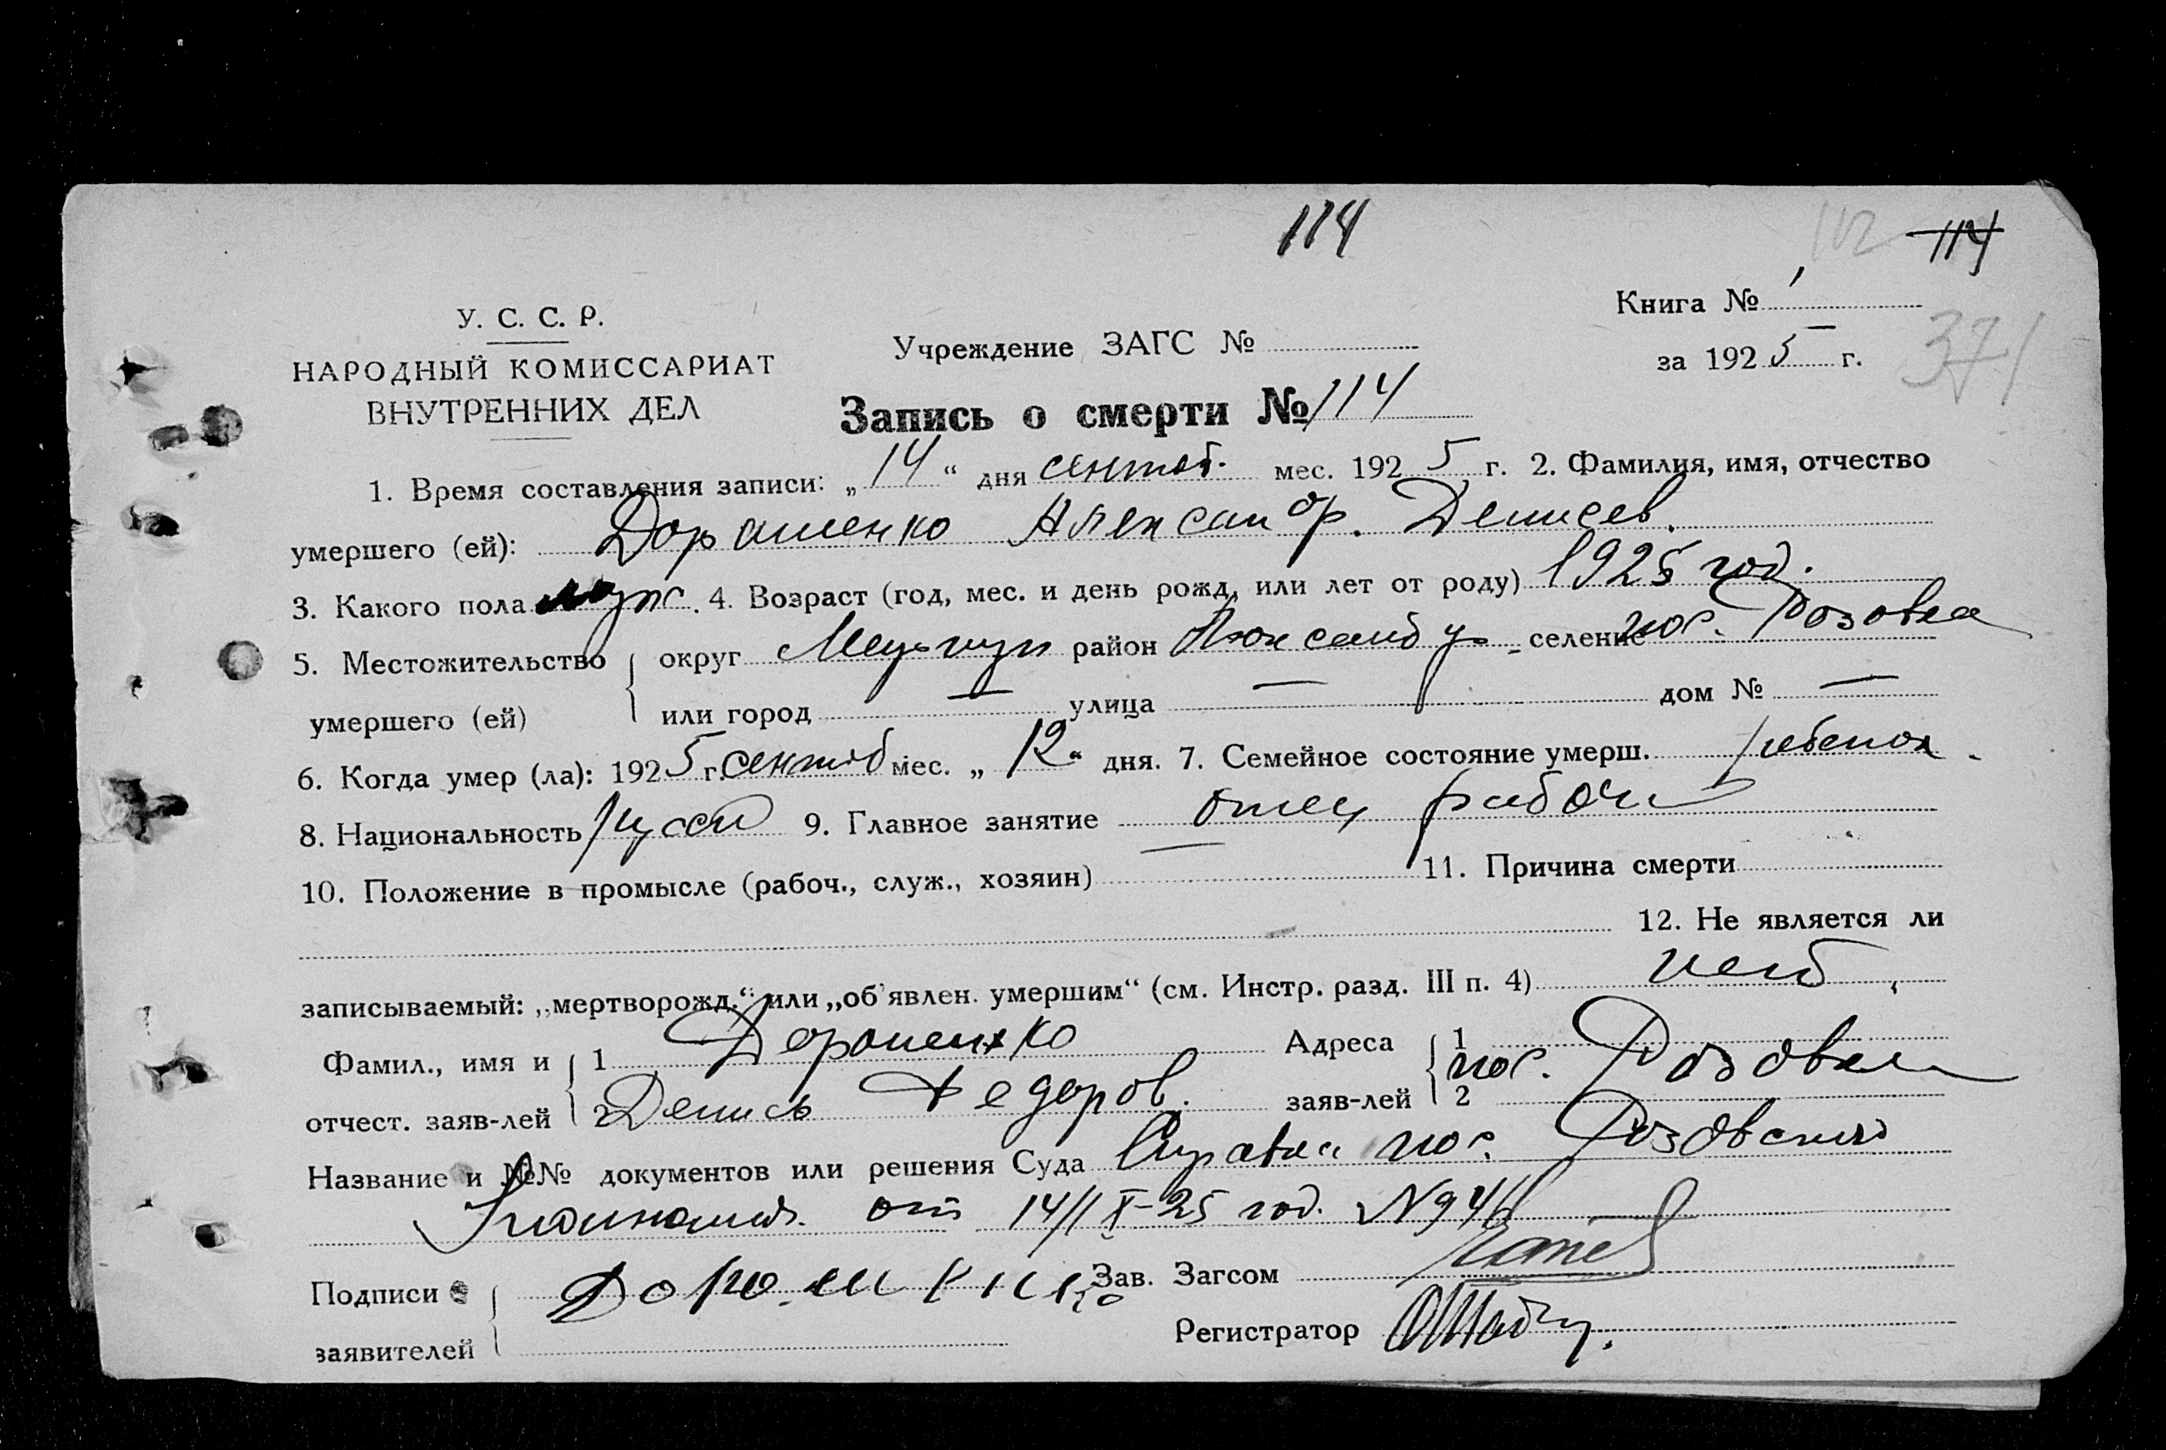 114
112 114
У. С. С. Р.
НАРОДНЫЙ КОМИССАРИАТ
ВНУТРЕННИХ ДЕЛ
Учреждение ЗАГС №
Книга № 1
за 1925 г.
371
Запись о смерти № 114
1. Время составления записи: „14“ дня сентяб. мес. 1925 г. 2. Фамилия, имя, отчество
умершего (ей): Дорашенко Александр. Денисев.
3. Какого пола муж. 4. Возраст (год, мес. и день рожд. или лет от роду) 1925 год.
5. Местожительство округ район Люксембур селение пос. Розовка
умершего (ей) или город — улица — дом № —
6. Когда умер (ла): 1925 г. сентяб мес. „12“ дня. 7. Семейное состояние умерш. ребенок.
8. Национальность русск 9. Главное занятие отец рабоч
10. Положение в промысле (рабоч., служ., хозяин) — 11. Причина смерти
12. Не является ли
записываемый: „мертворожд.“ или „об'явлен. умершим“ (см. Инстр. разд. III п. 4) нет
Фамил., имя и 1 Дорошенко Адреса 1
отчест. заяв-лей 2 Денись Федоров. заяв-лей 2 пос. Розовка
Название и №№ документов или решения Суда Справка пос. Розовского
от 14/IX-25 год. N946
Подписи Дорошенко Зав. Загсом
заявителей Регистратор